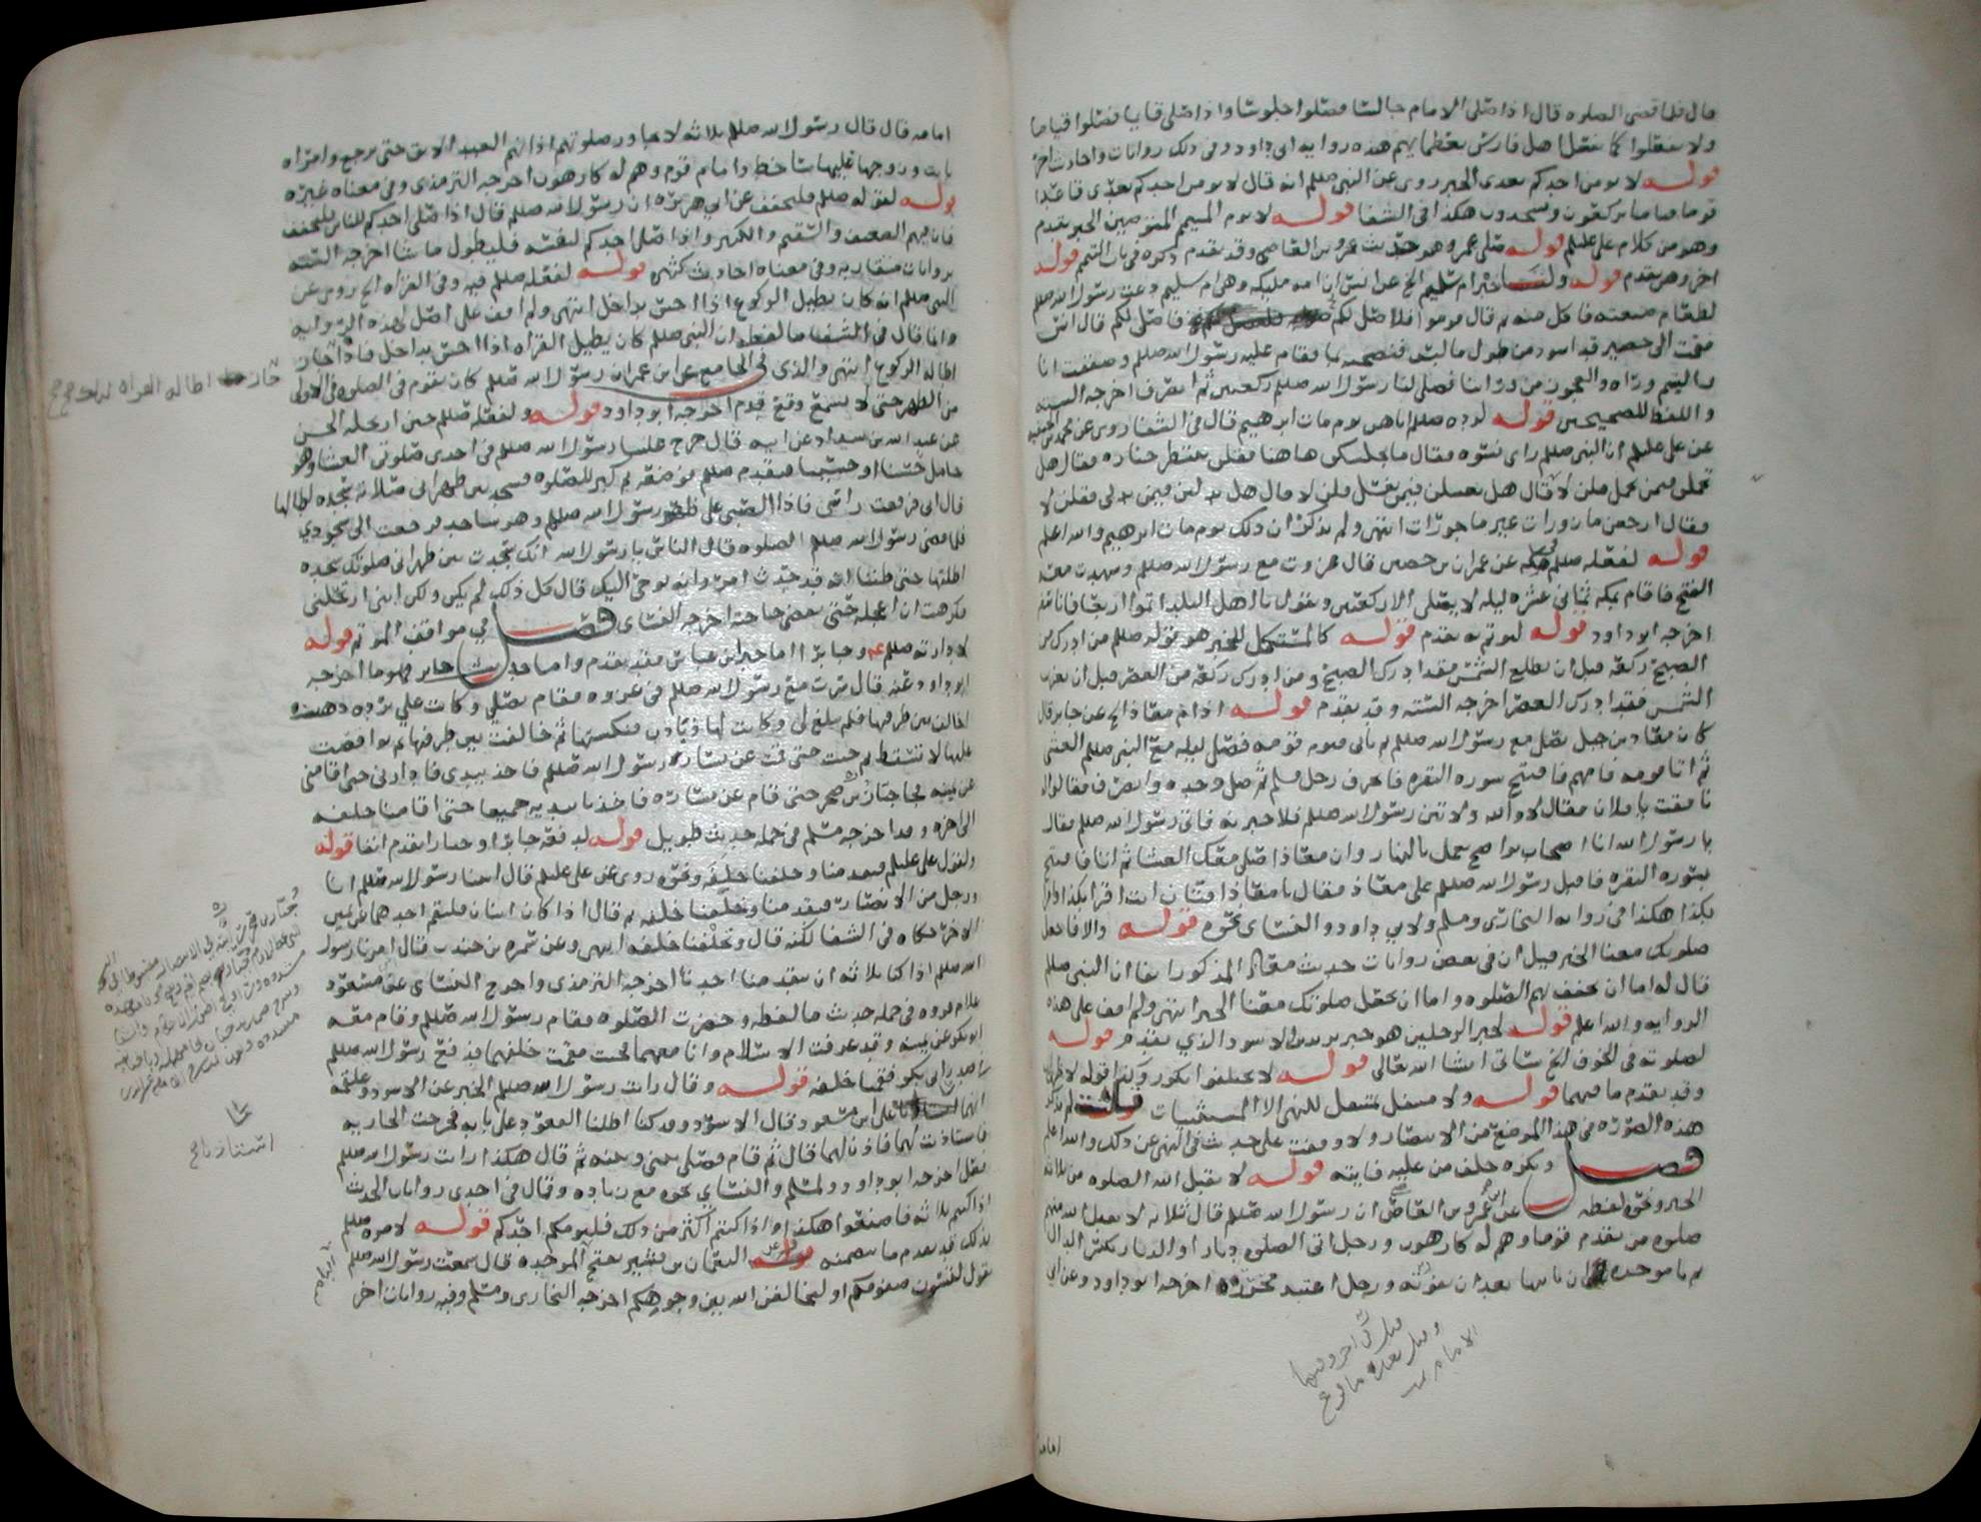 قال فلما قضى الصلوه قال اذا صلى الامام جالسا فصلوا جلوسا واذا صلى قايما فصلوا قياما
ولا تفعلوا كما يفعل اهل فارس بعظمايهم هذه روايه ابي داود وفي ذلك روايات واحاديث اخر
قوله لا يؤمن احدكم بعدي الخبر روي عن النبي صللم انه قال لا يؤمن احدكم بعدي قاعدا
قوما قياما يركعون ويسجدون هكذا في الشفا قوله لا يوم المتيمم المتوضين الخبر تقدم
وهو من كلام علي عليلم قوله صلى عمرو هو حديث عمرو بن العاص وقد تقدم ذكره في باب التيمم قوله
اخر وهن تقدم قوله ولخبر ام سليم الخ عن انس ان امه مليكه وهي ام سليم دعت رسول الله صللم
لطعام صنعته فاكل منه ثم قال قوموا فلاصل لكم فاصلي لكم قال انس
فقمت الى حصير قد اسود من طول ما لبس فنضحته بما فقام عليه رسول الله صللم وصففت انا
واليتيم وراه والعجوز من وراينا فصلى لنا رسول الله صللم ركعتين ثم انصرف اخرجه السته
واللفظ للصحيحين قوله لرده صللم اياهن يوم مات ابرهيم قال في الشفا روي عن محمد بن الحنفيه
عن علي عليلم ان النبي صللم راى نسوه فقال ما يجلسكن هاهنا فقلن ننتظر جنازه فقال هل
تحملن فيمن يحمل قلن لا قال هل تغسلن فيمن يغسل قلن لا قال هل تدلين فيمن يدلي فقلن لا
فقال ارجعن مازورات غير ماجورات انتهى ولم يذكر ان ذلك يوم مات ابرهيم والله اعلم
قوله لفعله صللم في مكه عن عمران بن حصين قال غزوت مع رسول الله صللم وشهدت معه
الفتح فاقام بمكه ثماني عشره ليله لا يصلي الا ركعتين ويقول يا اهل البلد اتموا اربعا فانا سفر
اخرجه ابو داود قوله ليوتم به تقدم قوله كالمستكمل للخبر هو قوله صللم من ادرك من
الصبح ركعه قبل ان تطلع الشمس فقد ادرك الصبح ومن ادرك ركعه من العصر قبل ان تغرب
الشمس فقد ادرك العصر اخرجه السته وقد تقدم قوله اذ ام معاذ الخ عن جابر قال
كان معاذ بن جبل يصلي مع رسول الله صللم ثم ياتي فيوم قومه فصلى ليله مع النبي صللم العشا
ثم اتا قومه فامهم فافتتح سوره البقره فانحرف رجل فسلم ثم صلى وحده وانصرف فقالوا له
نافقت يا فلان فقال لا والله ولاتين رسول الله صللم فلاخبرنه فاتى رسول الله صللم فقال
يا رسول الله انا اصحاب نواضح نعمل بالنهار وان معاذا صلى معك العشا ثم اتا فافتتح
بسوره البقره فاقبل رسول الله صللم على معاذ فقال يا معاذ افتان انت اقرا بكذا واقرا
بكذا هكذا في روايه البخاري ومسلم ولابي داود والنسائي نحوه قوله والا فاجعل
صلوتك معنا الخبر قيل ان في بعض روايات حديث معاذ المذكور انفا ان النبي صللم
قال له اما ان تخفف بهم الصلوه واما ان تجعل صلوتك معنا الخبر انتهى ولم اقف على هذه
الروايه والله اعلم قوله لخبر الرجلين هو خبر يزيد بن الاسود الذي تقدم قوله
لصلوته في الخوف الخ ستاتي ان شا الله تعالى قوله لا تختلفوا تكرر وكذا قوله لا ظهران
وقد تقدم ما فيهما قوله ولا متنفل بمتنفل للنهي الا المستثنيات لم يذكر
هذه الصوره في هذا الموضع من الانتصار ولا وقفت على حديث في النهي عن ذلك والله اعلم
فصل وتكره خلف من عليه فايته قوله لا يقبل الله الصلوه من ثلاثه
الخبر ونحوه لفظه عن ابن عمرو بن العاص ان رسول الله صللم قال ثلاثه لا يقبل الله منهم
صلوه من تقدم قوما وهم له كارهون ورجل اتى الصلوه دبارا والدبار بكسر الدال
ثم با موحده ان ياتيها بعد ان تفوته ورجل اعتبد محرره اخرجه ابو داود وعن ابي
امامه
امامه قال قال رسول الله صللم ثلاثه لا تجاوز صلوتهم اذانهم العبد الابق حتى يرجع وامراه
باتت وزوجها عليها ساخط وامام قوم وهم له كارهون اخرجه الترمذي وفي معناه غيره
قوله لقوله صللم فليخفف عن ابي هريره ان رسول الله صللم قال اذا صلى احدكم للناس فليخفف
فان فيهم الضعيف والسقيم والكبير واذا صلى احدكم لنفسه فليطول ما شا اخرجه السته
بروايات متقاربه وفي معناه احاديث كثيره قوله لفعله صللم فيه وفي القراه الخ روي عن
النبي صللم انه كان يطيل الركوع اذا احس بداخل انتهى ولم اقف على اصل لهذه الروايه
وانما قال في الشفا ما لفظه ان النبي صللم كان يطيل القراه اذا احس بداخل فاذا جاز
اطاله الركوع انتهى والذي في الجامع عن ابن عمران رسول الله صللم كان يقوم في الصلوه في الاولى
من الظهر حتى لا يسمع وقع قدم اخرجه ابو داود قوله ولفعله صللم حين ارتحله الحسن
عن عبد الله بن شداد عن ابيه قال خرج علينا رسول الله صللم في احدى صلوتي العشا وهو
حامل حسنا او حسينا فتقدم صللم فوضعه ثم كبر للصلوه فسجد بين ظهراني صلاته سجده اطالها
قال ابي فرفعت راسي فاذا الصبي على ظهر رسول الله صللم وهو ساجد فرجعت الى سجودي
فلما قضى رسول الله صللم الصلوه قال الناس يا رسول الله انك سجدت بين ظهراني صلوتك سجده
اطلتها حتى ظننا انه قد حدث امر وانه يوحى اليك قال كل ذلك لم يكن ولكن ابني ارتحلني
فكرهت ان اعجله حتى يقضي حاجته اخرجه النسائي فصل في مواقف الموتم قوله
لادارته صللم عم وجابرا اما خبر ابن عباس فقد تقدم واما حديث جابر فهو ما اخرجه
ابو داود عنه قال سرت مع رسول الله صللم في غزوه فقام يصلي وكانت علي برده ذهبت
اخالف بين طرفيها فلم يبلغ لي وكانت لها ذباذب فنكستها ثم خالفت بين طرفيها ثم تواقصت
عليها لا تسقط ثم جيت حتى قمت عن يسار رسول الله صللم فاخذ بيدي فادارني حتى اقامني
عن يمينه فجا جبار بن صخر حتى قام عن يساره فاخذنا بيديه جميعا حتى اقامنا خلفه
الى اخره وهذا اخرجه مسلم في جمله حديث طويل قوله لدفعه جابرا وجبارا تقدم انفا قوله
ولقول علي عليلم فيقدمنا وخلفنا خلفه ونحوه روي عن علي عليلم قال امنا رسول الله صللم انا
ورجل من الانصار فتقدمنا وخلفنا خلفه ثم قال اذا كان اثنان فليقم احدهما عن يمين
الاخر حكاه في الشفا لكنه قال وتخلفنا خلفه انتهى وعن سمره بن جندب قال امرنا رسول
الله صللم اذا كنا ثلاثه ان يتقدمنا احدنا اخرجه الترمذي واخرج النسائي عن مسعود
غلام فروه في جمله حديث ما لفظه وحضرت الصلوه فقام رسول الله صللم وقام معه
ابو بكر عن يمينه وقد عرفت الاسلام وانا معهما فجيت فقمت خلفهما فدفع رسول الله صللم
في صدر ابي بكر فقمنا خلفه قوله وقال رايت رسول الله صللم الخبر عن الاسود وعلقمه
انهما استاذنا على ابن مسعود قال الاسود وقد كنا اطلنا القعود على بابه فخرجت الجاريه
فاستاذنت لهما فاذن لهما قال ثم قام فصلى بيني وبينه ثم قال هكذا رايت رسول الله صللم
فعل اخرجه ابو داود ولمسلم والنسائي نحوه مع زياده وقال في احدى روايات الحديث
اذا كنتم ثلاثه فاصنعوا هكذا واذا كنتم اكثر من ذلك فليومكم احدكم قوله لامره صللم
بذلك قد تقدم ما تضمنه قوله النعمان بن بشير بفتح الموحده قال سمعت رسول الله صللم
يقول لتسون صفوفكم او ليخالفن الله بين وجوهكم اخرجه البخاري ومسلم وفيه روايات اخر